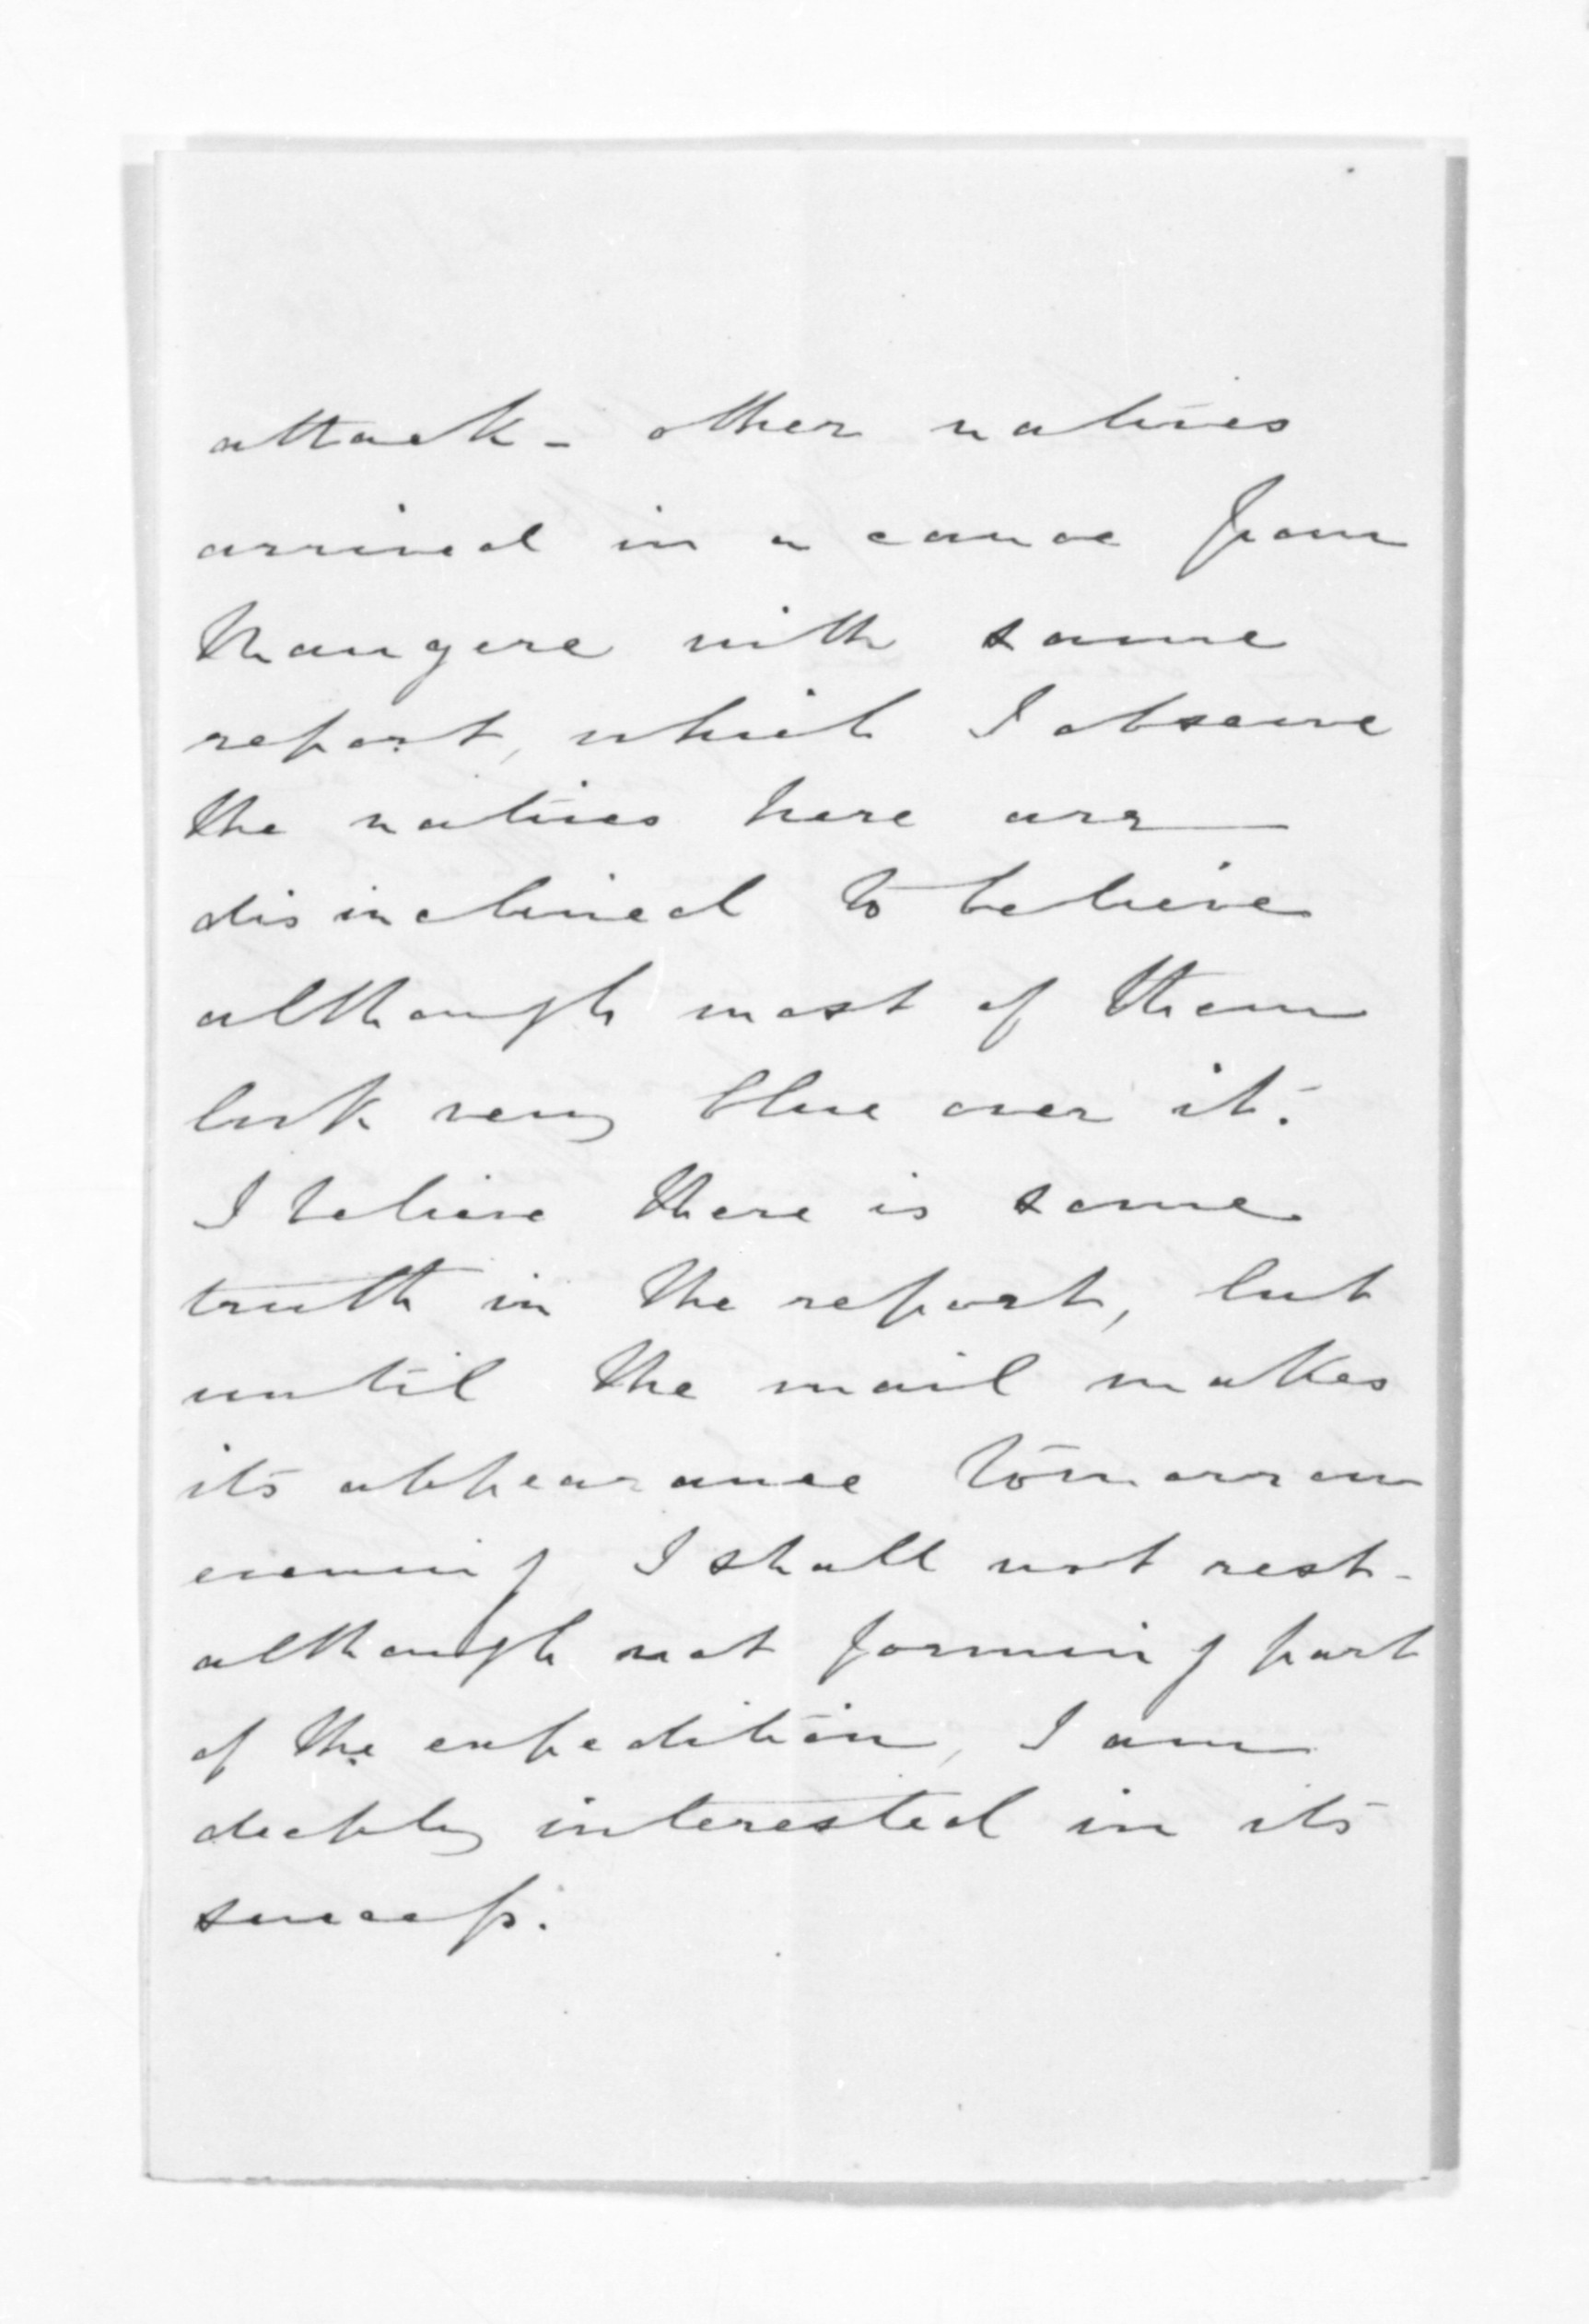 attack - other natives
arrived in a canoe from
Mangere with same
report, which I observe
the natives here are
disinclined to believe
although most of them
look very blue over it.
I believe there is some
truth in the report, but
until the mail makes
its appearance tomorrow
evening I shall not rest -
although not forming part
of the expedition, I am
deeply interested in its
success.